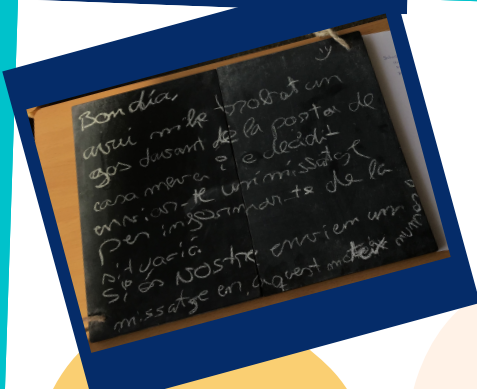 Bon dia,
avui m'he trobat un
gos davant de la porta de
casa meva i e decidit
enviar-te un missatge
per informar-te de la
situació
Si es NOStre enviem un
missatge en aquest mateix numero